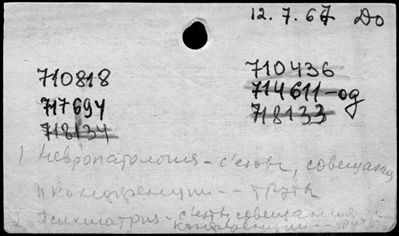 12.7.67 До
710818
717694
718134
710436
714611-од
718133
1 Невропатология - съезды, совещания
и конференции -- труды
2 Психиатрия - съезды, совещания и
конференции --